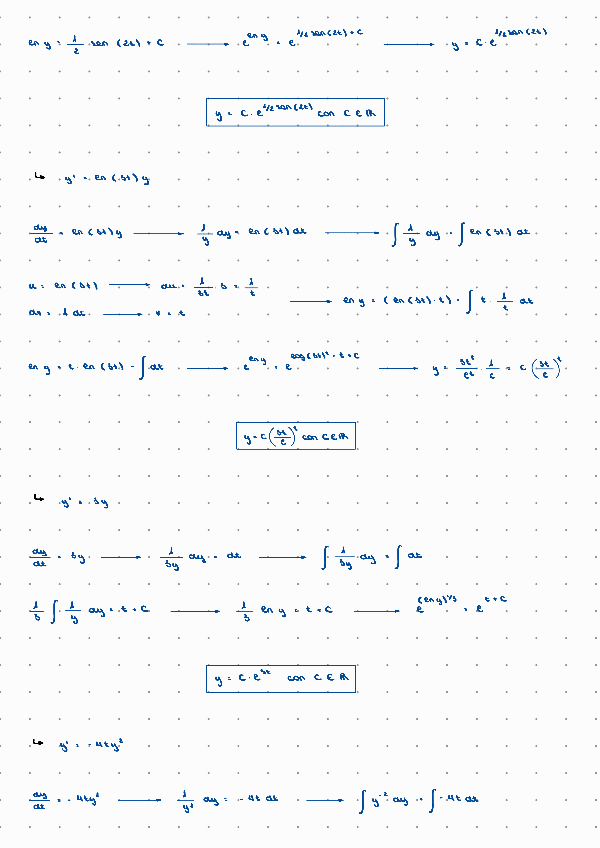 ln y = 1/2 sen (2t) + C ⟶ e^{ln y} = e^{1/2 sen(2t) + C} ⟶ y = C · e^{1/2 sen(2t)}
y = C · e^{1/2 sen(2t)} con C ∈ ℝ
↳ y' = ln (3t) y
dy/dt = ln (3t) y ⟶ 1/y dy = ln (3t) dt ⟶ ∫ 1/y dy = ∫ ln (3t) dt
u = ln (3t) ⟶ du = 1/3t · 3 = 1/t
dv = 1 dt ⟶ v = t
⟶ ln y = (ln (3t) · t) - ∫ t · 1/t dt
ln y = t · ln (3t) - ∫ dt ⟶ e^{ln y} = e^{log(3t)^t - t + C} ⟶ y = 3t^t/e^t · 1/c = C (3t/e)^t
y = C (3t/e)^t con C ∈ ℝ
↳ y' = 3y
dy/dt = 3y ⟶ 1/3y dy = dt ⟶ ∫ 1/3y dy = ∫ dt
1/3 ∫ 1/y dy = t + C ⟶ 1/3 ln y = t + C ⟶ e^{(ln y)^{1/3}} = e^{t + C}
y = C · e^{3t} con C ∈ ℝ
↳ y' = -4ty²
dy/dt = -4ty² ⟶ 1/y² dy = -4t dt ⟶ ∫ y^{-2} dy = ∫ -4t dt